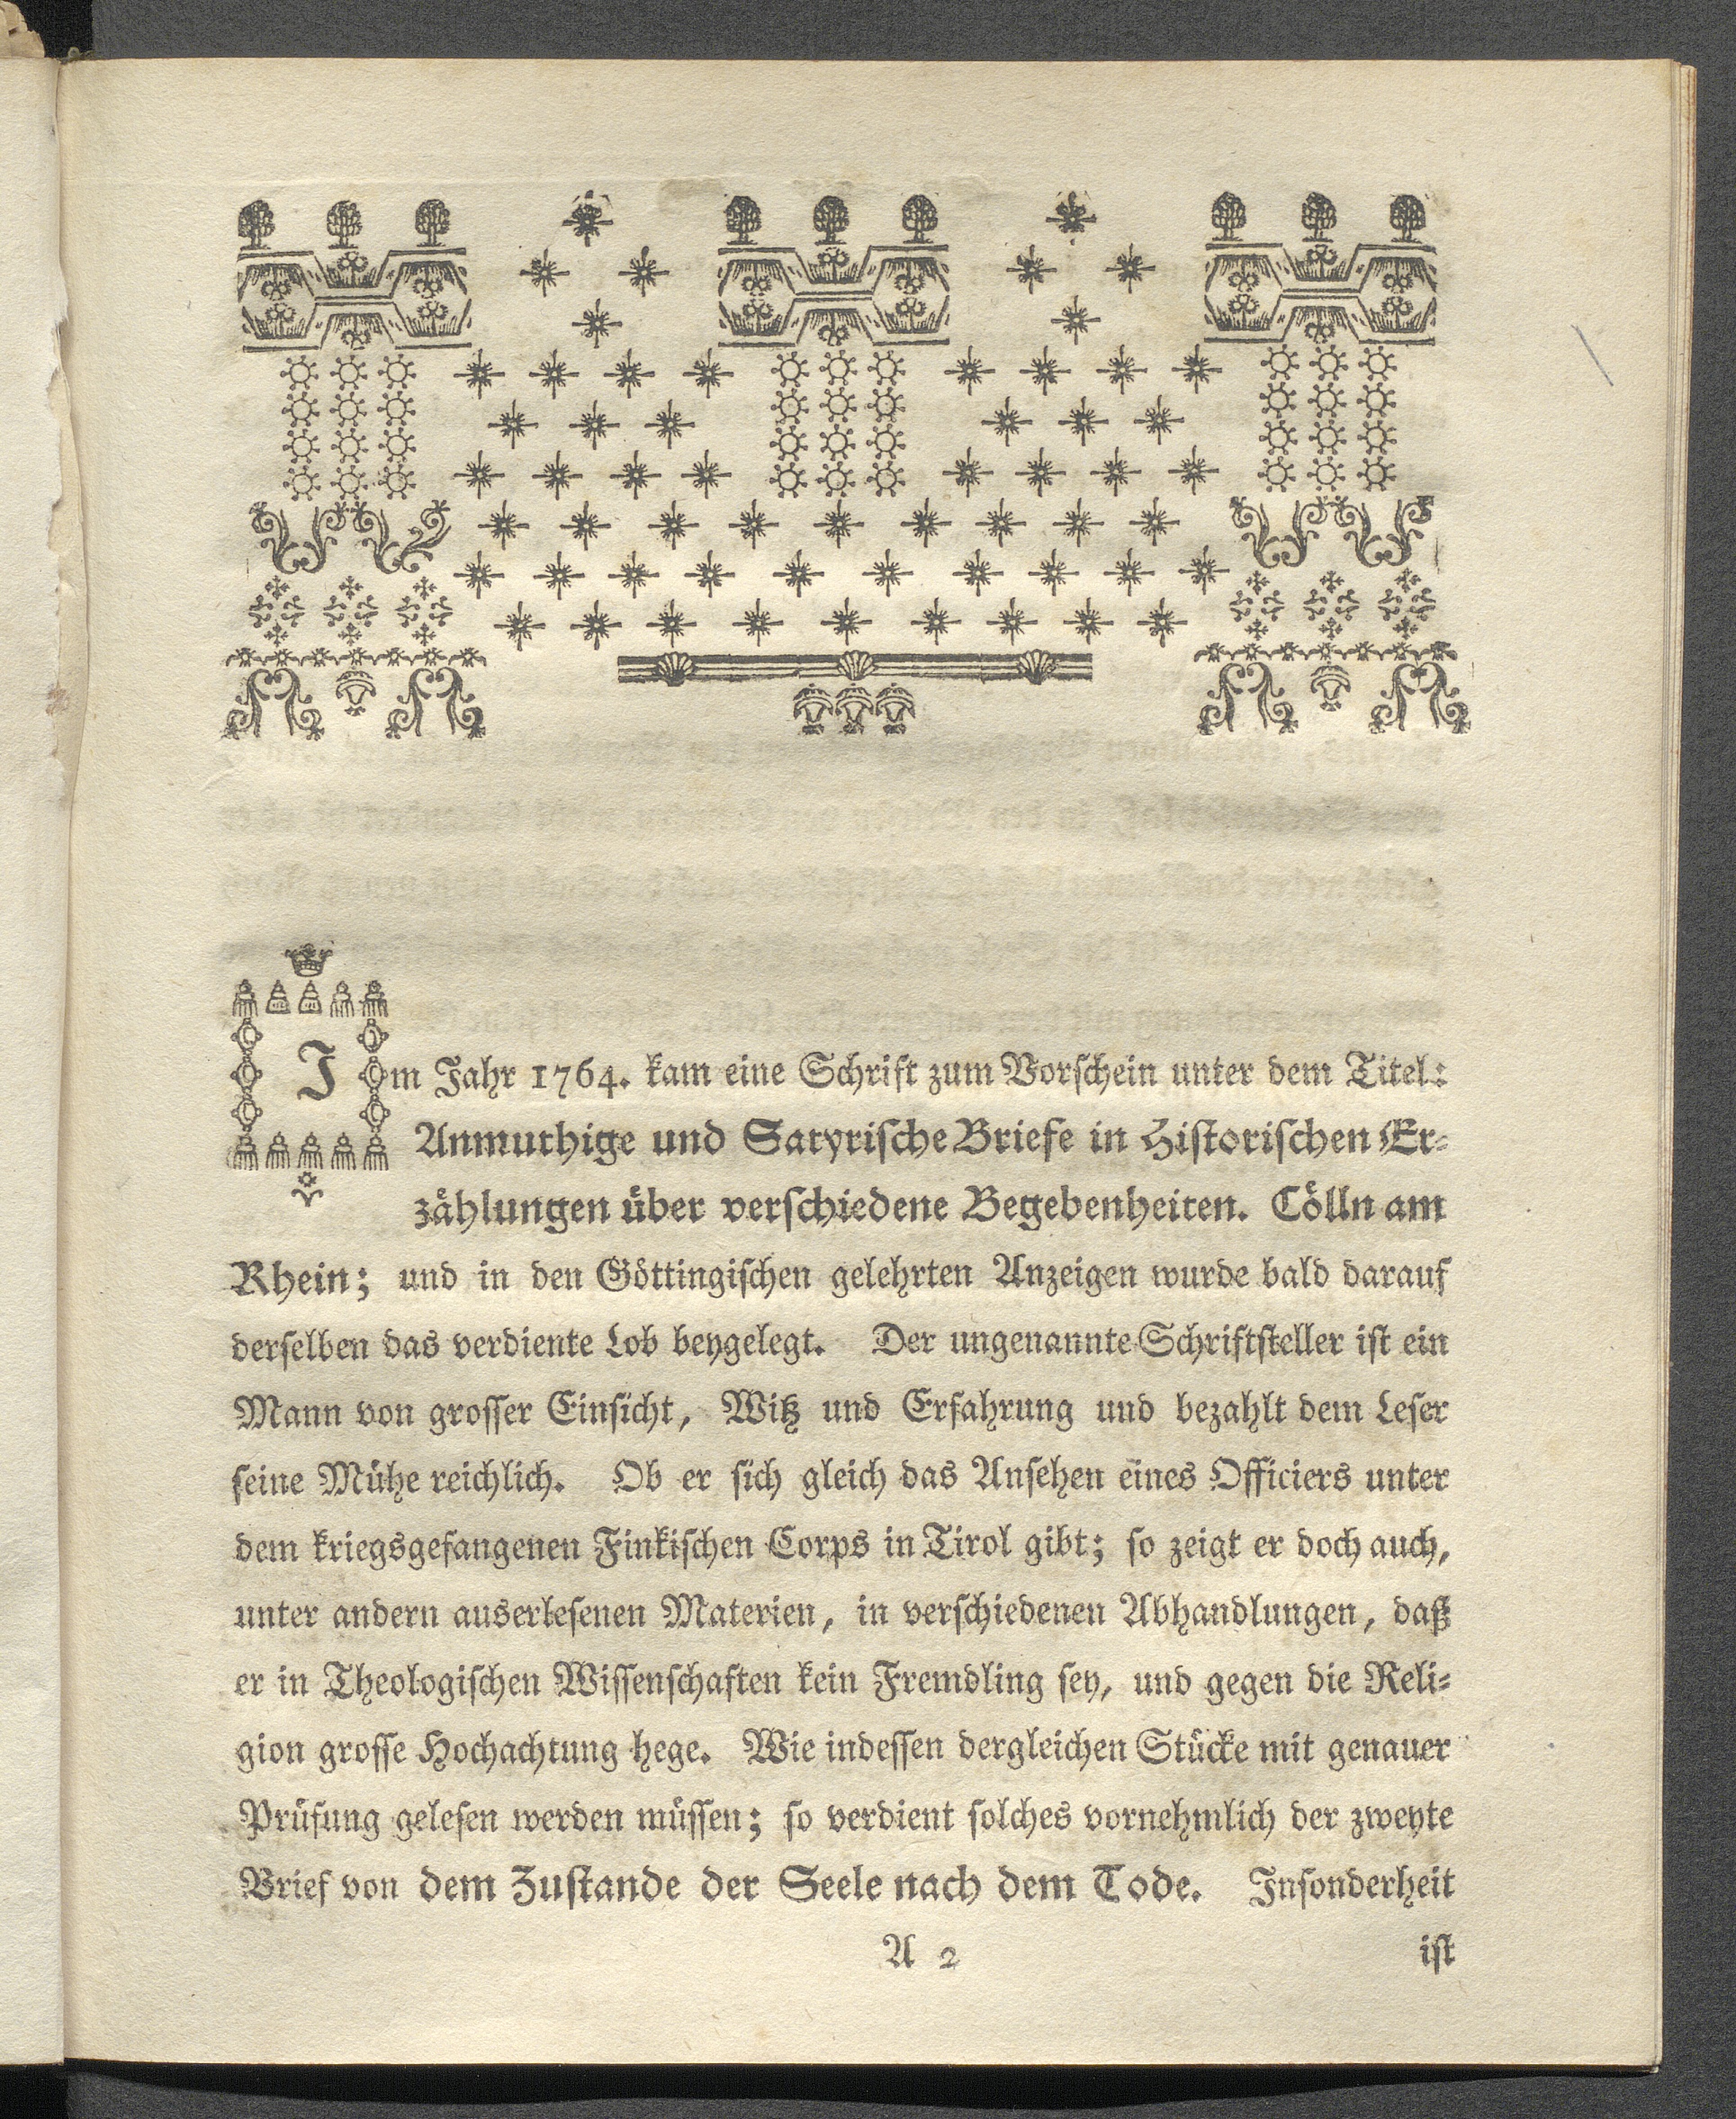 Im Jahr 1764. kam eine Schrift zum Vorschein unter dem Titel:
Anmuthige und Satyrische Briefe in Historischen Er-
zählungen über verschiedene Begebenheiten. Cölln am
Rhein; und in den Göttingischen gelehrten Anzeigen wurde bald darauf
derselben das verdiente Lob beygelegt. Der ungenannte Schriftsteller ist ein
Mann von grosser Einsicht, Witz und Erfahrung und bezahlt dem Leser
seine Mühe reichlich. Ob er sich gleich das Ansehen eines Officiers unter
dem kriegsgefangenen Finkischen Corps in Tirol gibt; so zeigt er doch auch,
unter andern auserlesenen Materien, in verschiedenen Abhandlungen, daß
er in Theologischen Wissenschaften kein Fremdling sey, und gegen die Reli-
gion grosse Hochachtung hege. Wie indessen dergleichen Stücke mit genauer
Prüfung gelesen werden müssen; so verdient solches vornehmlich der zweyte
Brief von dem Zustande der Seele nach dem Tode. Insonderheit
A 2 ist